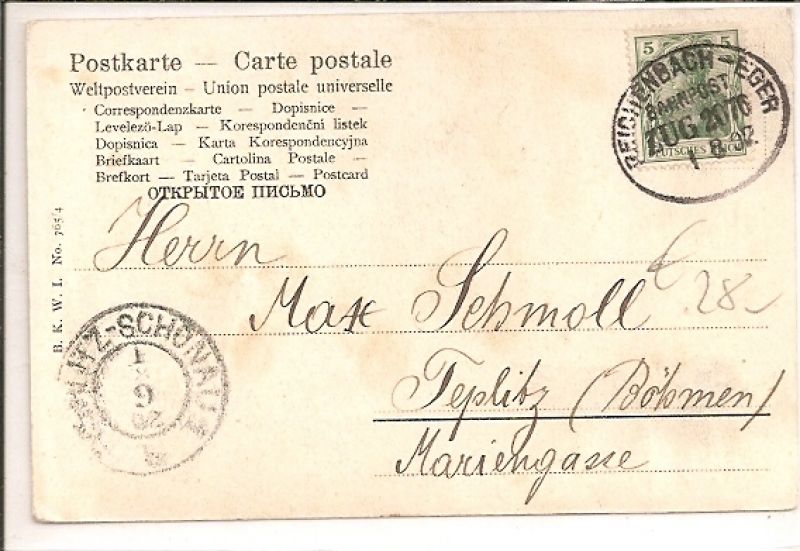 Postkarte — Carte postale
Weltpostverein – Union postale universelle
Correspondenzkarte — Dopisnice —
Levelező-Lap — Korespondenční listek
Dopisnica — Karta Korespondencyjna
Briefkaart — Cartolina Postale —
Brefkort — Tarjeta Postal — Postcard
ОТКРЫТОЕ ПИСЬМО
5 5
DEUTSCHES REICH
REICHENBACH-EGER
BAHNPOST
ZUG 2070
1 8 02
Herrn
Max Schmoll
€ 28-
Teplitz (Böhmen)
Mariengasse
B. K. W. I. No. 765/4
TEPLITZ-SCHÖNAU 1